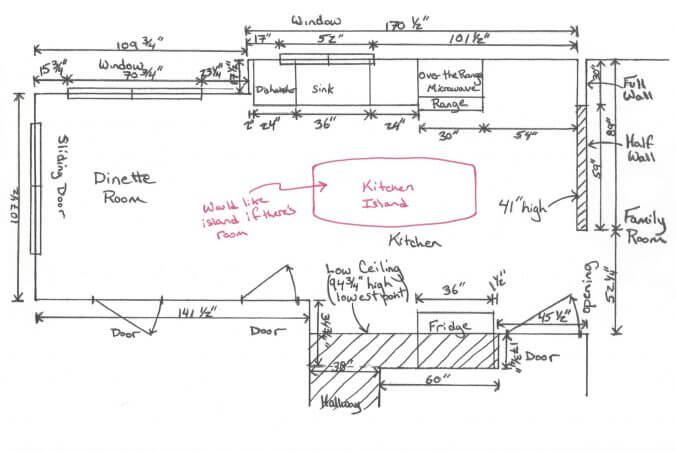 Window
170 ½"
109 ¾"
17" 52" 101 ½"
15 ¾" Window 23 ¼"
70 ¾"
17 ½"
Dishwasher
Sink
Over the Range
Microwave
Range
2" 24" 36" 24" 30" 54"
30"
Full
Wall
89"
Half
Wall
59"
41" high
Family
Room
107 ½
Sliding Door
Dinette
Room
Would like
island if there's
room
Kitchen
Island
Kitchen
Low Ceiling
(94 ¾" high
lowest point)
36"
1 ½"
opening
52 ¼"
45 ½"
Door
141 ½"
Door
Fridge
Door
17 ¾"
38"
60"
Hallway